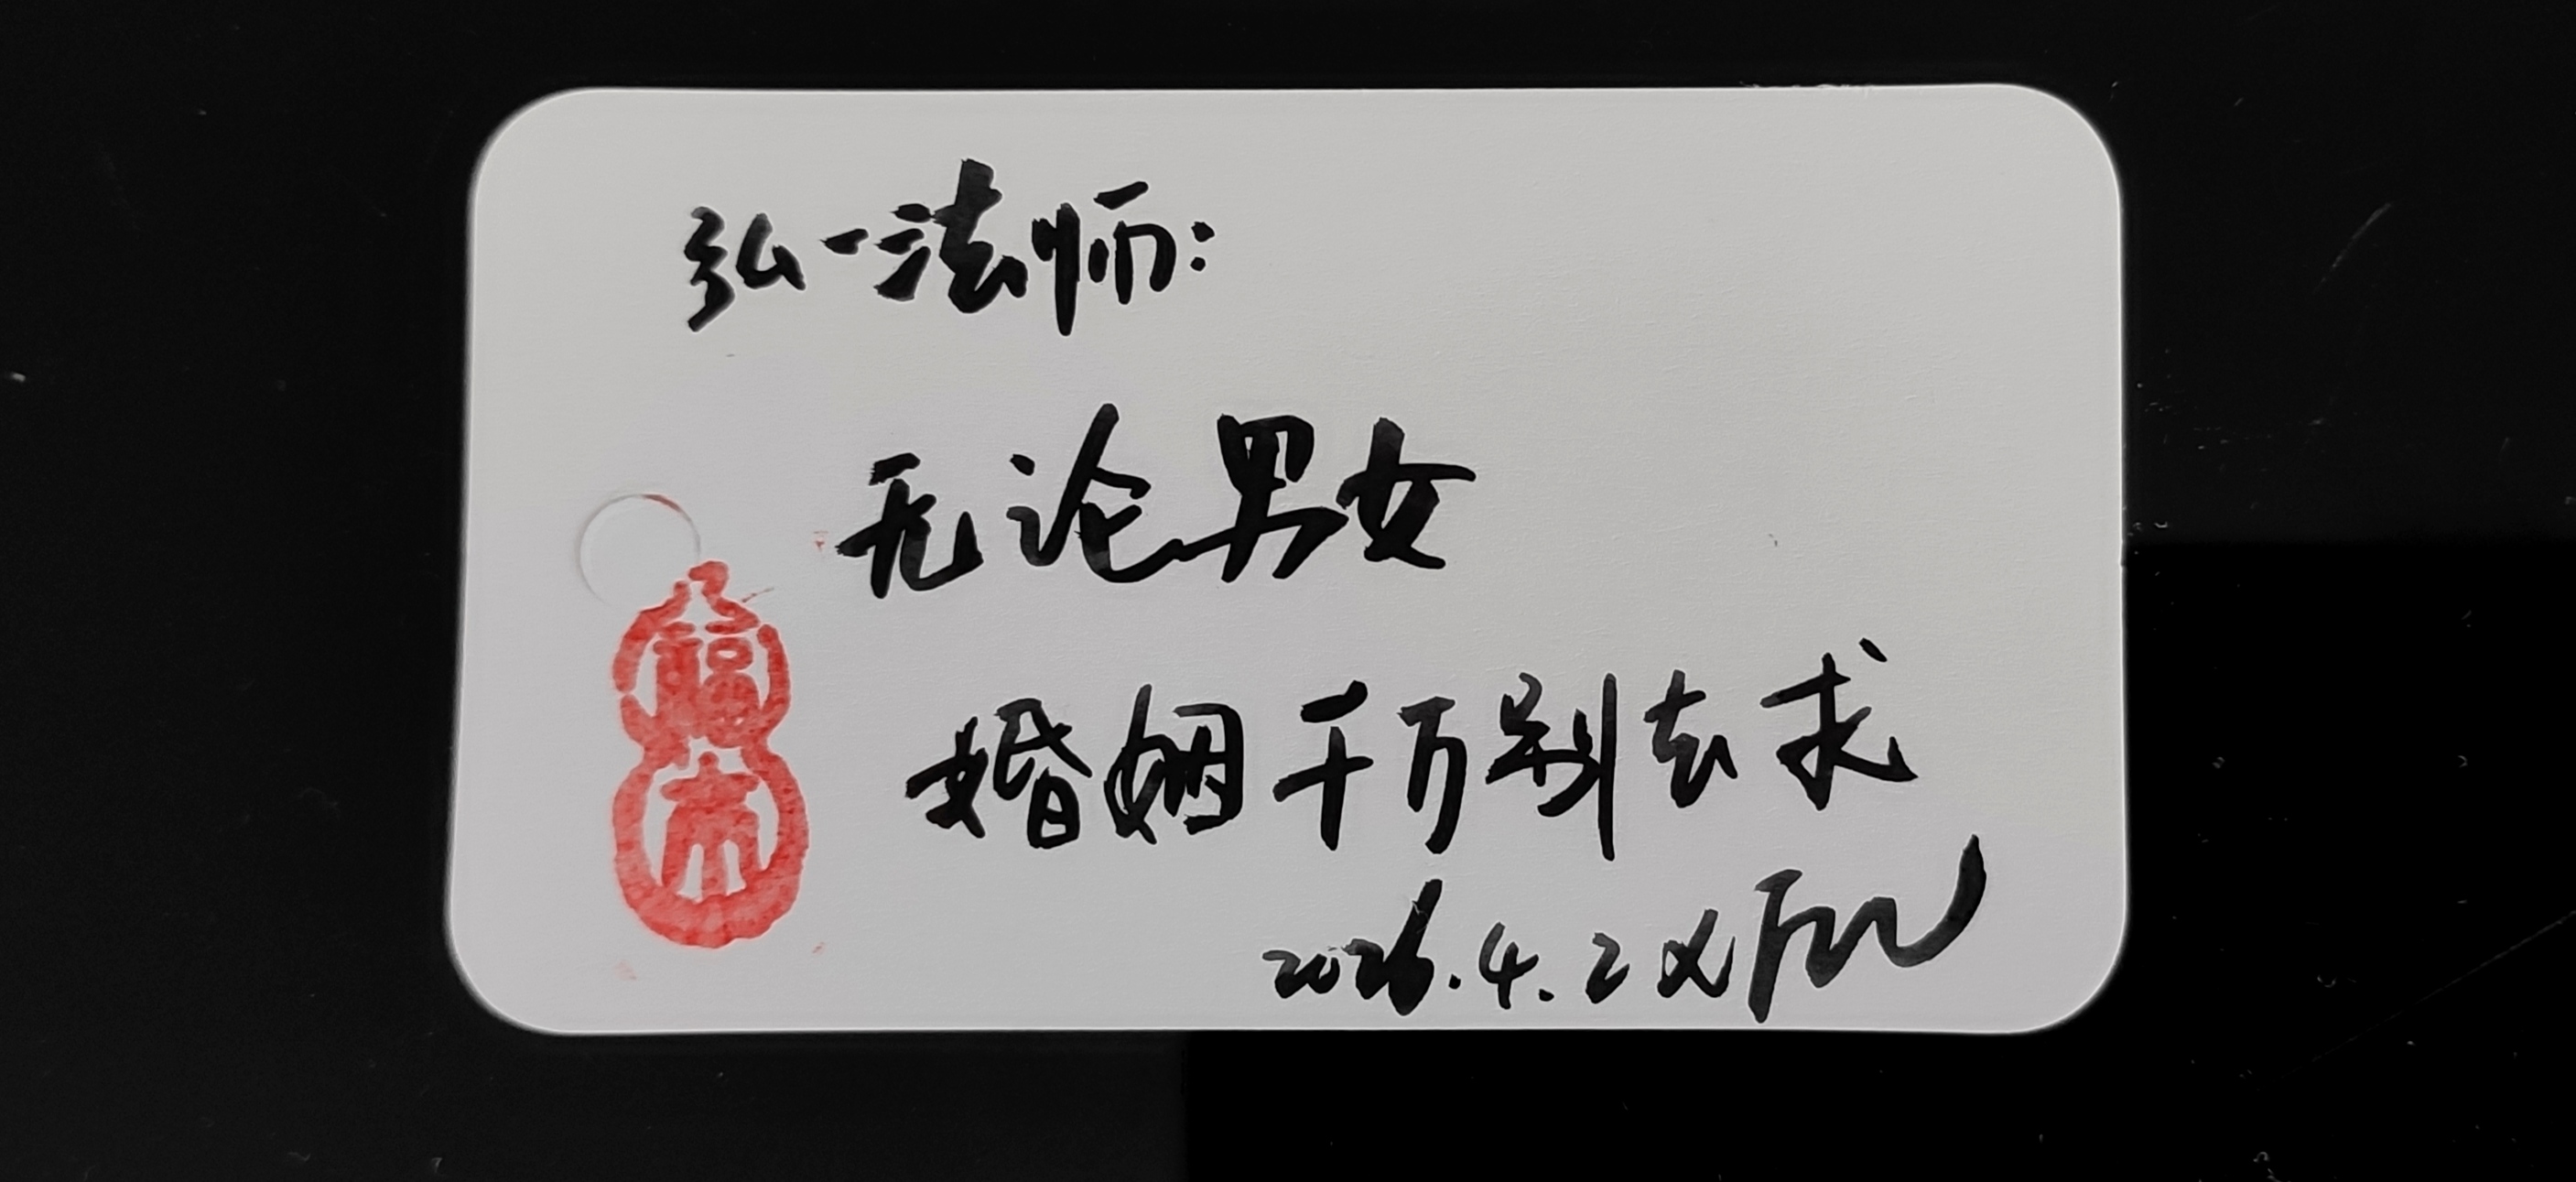 弘一法师：
无论男女
婚姻千万别去求
2026.4.2
福